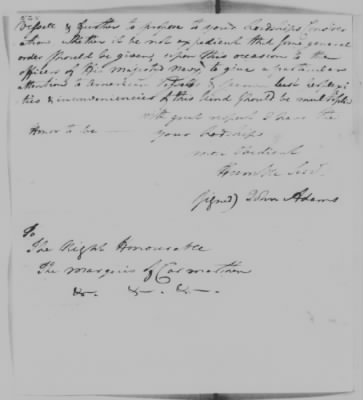 Vessels & further to propose to your Lordships Consider
ation whether it be not expedient that some general
order should be given, upon this occasion to the
officers of His Majestys Navy, to give a particular
Attention to American Vessels & Seamen lest perplexi
ties & inconveniences of this kind should be multiplied
with great respect I have the
Honor to be your Lordships
most obedient
Humble Servt.
(signed) John Adams
To
The Right Honourable
The Marquis of Carmarthen
&c. &c. &c.